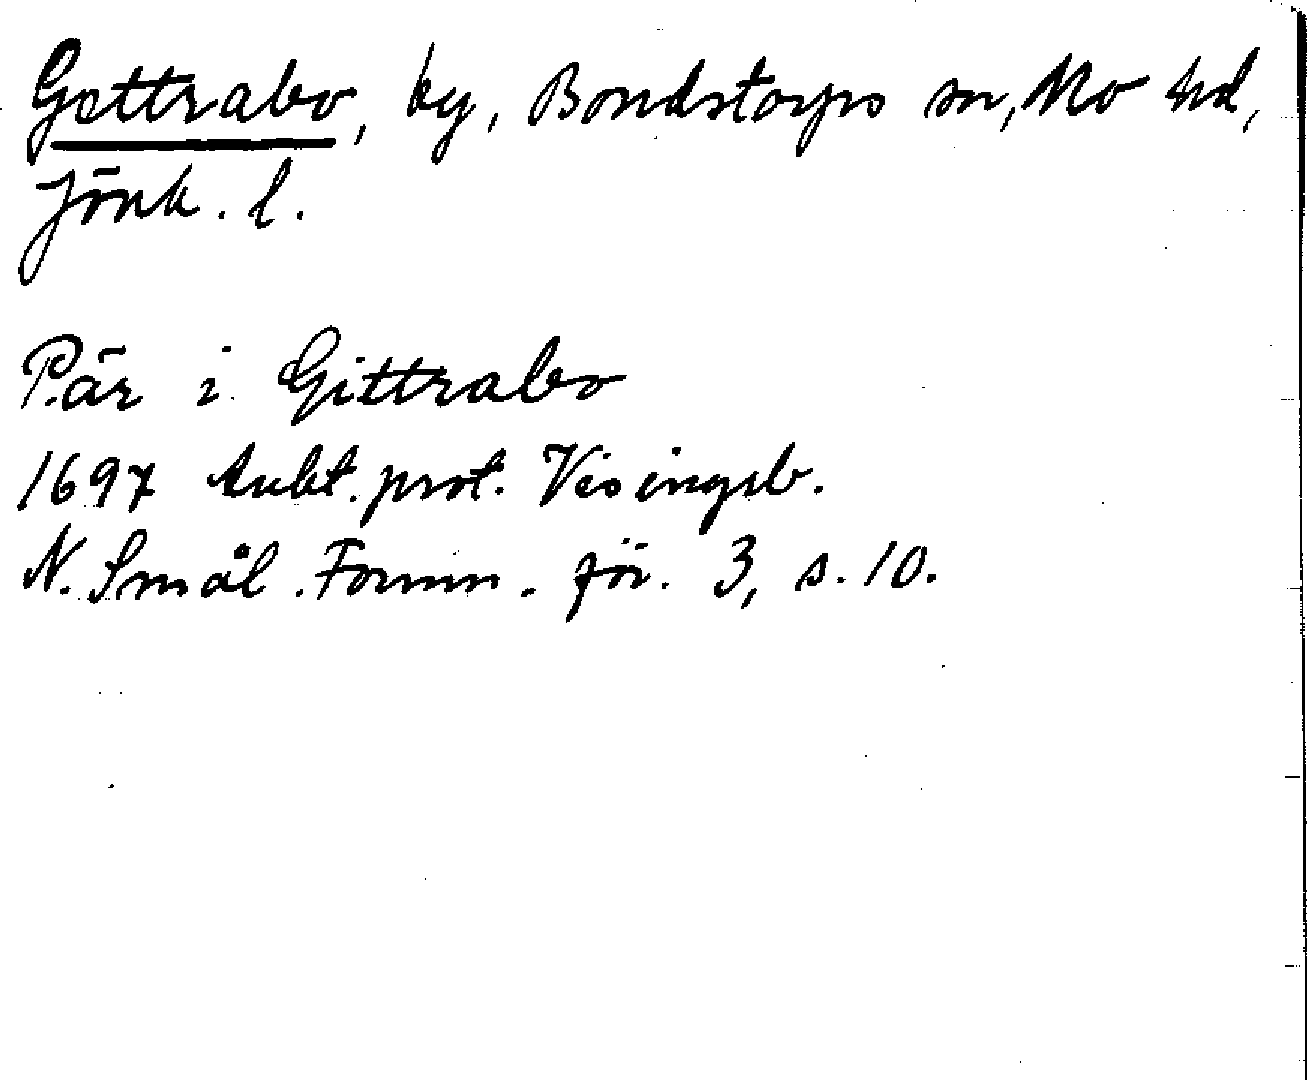 Gettrabo, by, Bondstorps sn, Mo hd,
Jönk. l.
Pär i Gittrabo
1697 Aukt. prot. Visingsb.
N. Smål. Fornm. för. 3, s. 10.